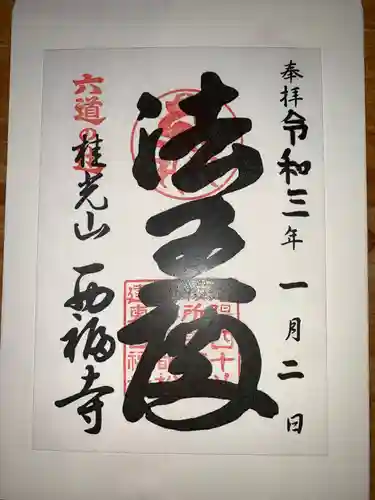 奉拝 令和三年 一月二日
法王殿
六道の辻
桂光山 西福寺